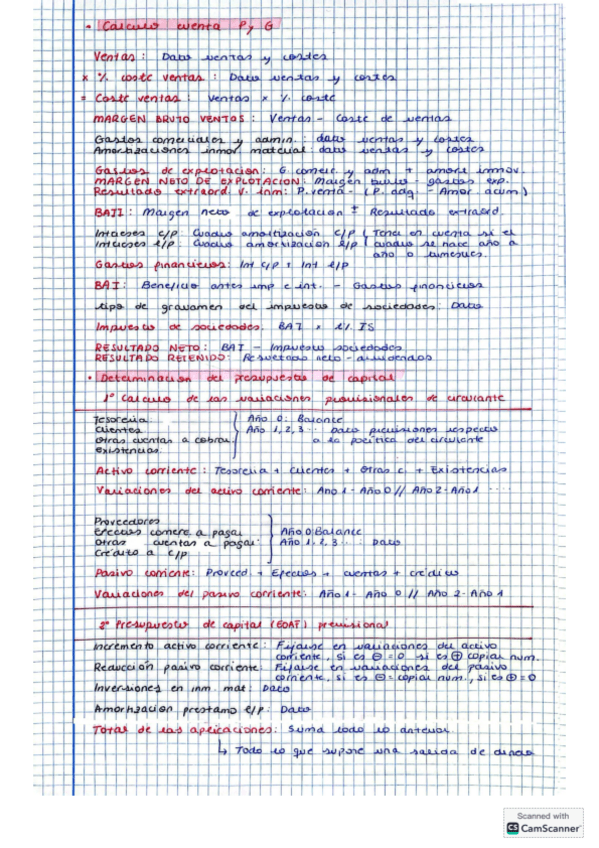 • Calculo cuenta P y G
Ventas: Dato ventas y costes
x % coste ventas: Dato ventas y costes
= Coste ventas: Ventas x % coste
MARGEN BRUTO VENTAS: Ventas - Coste de ventas
Gastos comerciales y admin.: dato ventas y costes
Amortizaciones inmov material: dato ventas y costes
Gastos de explotacion: G comerc. y adm + amort inmov.
MARGEN NETO DE EXPLOTACION: Margen bruto - gastos exp.
Resultado extraord v. inm: P. venta - (P. adq - Amor. acum)
BAII: Margen neto de explotacion ± Resultado extraord.
Intereses c/p: Cuadro amortización c/p ( Tener en cuenta si el
Intereses l/p: Cuadro amortización l/p ( cuadro se hace año a
año o trimestres.
Gastos financieros: Int c/p + Int l/p
BAI: Beneficio antes imp e int. - Gastos financieros
tipo de gravamen del impuesto de sociedades: Dato
Impuesto de sociedades: BAI x % IS
RESULTADO NETO: BAI - Impuesto sociedades
RESULTADO RETENIDO: Resultado neto - dividendos
• Determinacion del presupuesto de capital
1º Calculo de las variaciones previsionales de circulante
Tesoreria
Clientes
Otras cuentas a cobrar
Existencias
Año 0: Balance
Año 1, 2, 3...: Dato previsiones respecto
a la política del circulante
Activo corriente: Tesoreria + Clientes + Otras c + Existencias
Variaciones del activo corriente: Año 1 - Año 0 // Año 2 - Año 1 ....
Proveedores
Efectos comerc. a pagar
Otras cuentas a pagar
Credito a c/p
Año 0 Balance
Año 1, 2, 3...: Dato
Pasivo corriente: Proveed. + Efectos + cuentas + creditos
Variaciones del pasivo corriente: Año 1 - Año 0 // Año 2 - Año 1
2º Presupuesto de capital (EOAF) previsional
Incremento activo corriente: Fijarse en variaciones del activo
corriente, si es ⊖ = 0 si es ⊕ copiar num.
Reducción pasivo corriente: Fijarse en variaciones del pasivo
corriente, si es ⊖ = copiar num., si es ⊕ = 0
Inversiones en inm. mat: Dato
Amortizacion prestamo l/p: Dato
Total de las aplicaciones: Suma todo lo anterior
↳ Todo lo que supone una salida de dinero
Scanned with
CS CamScanner